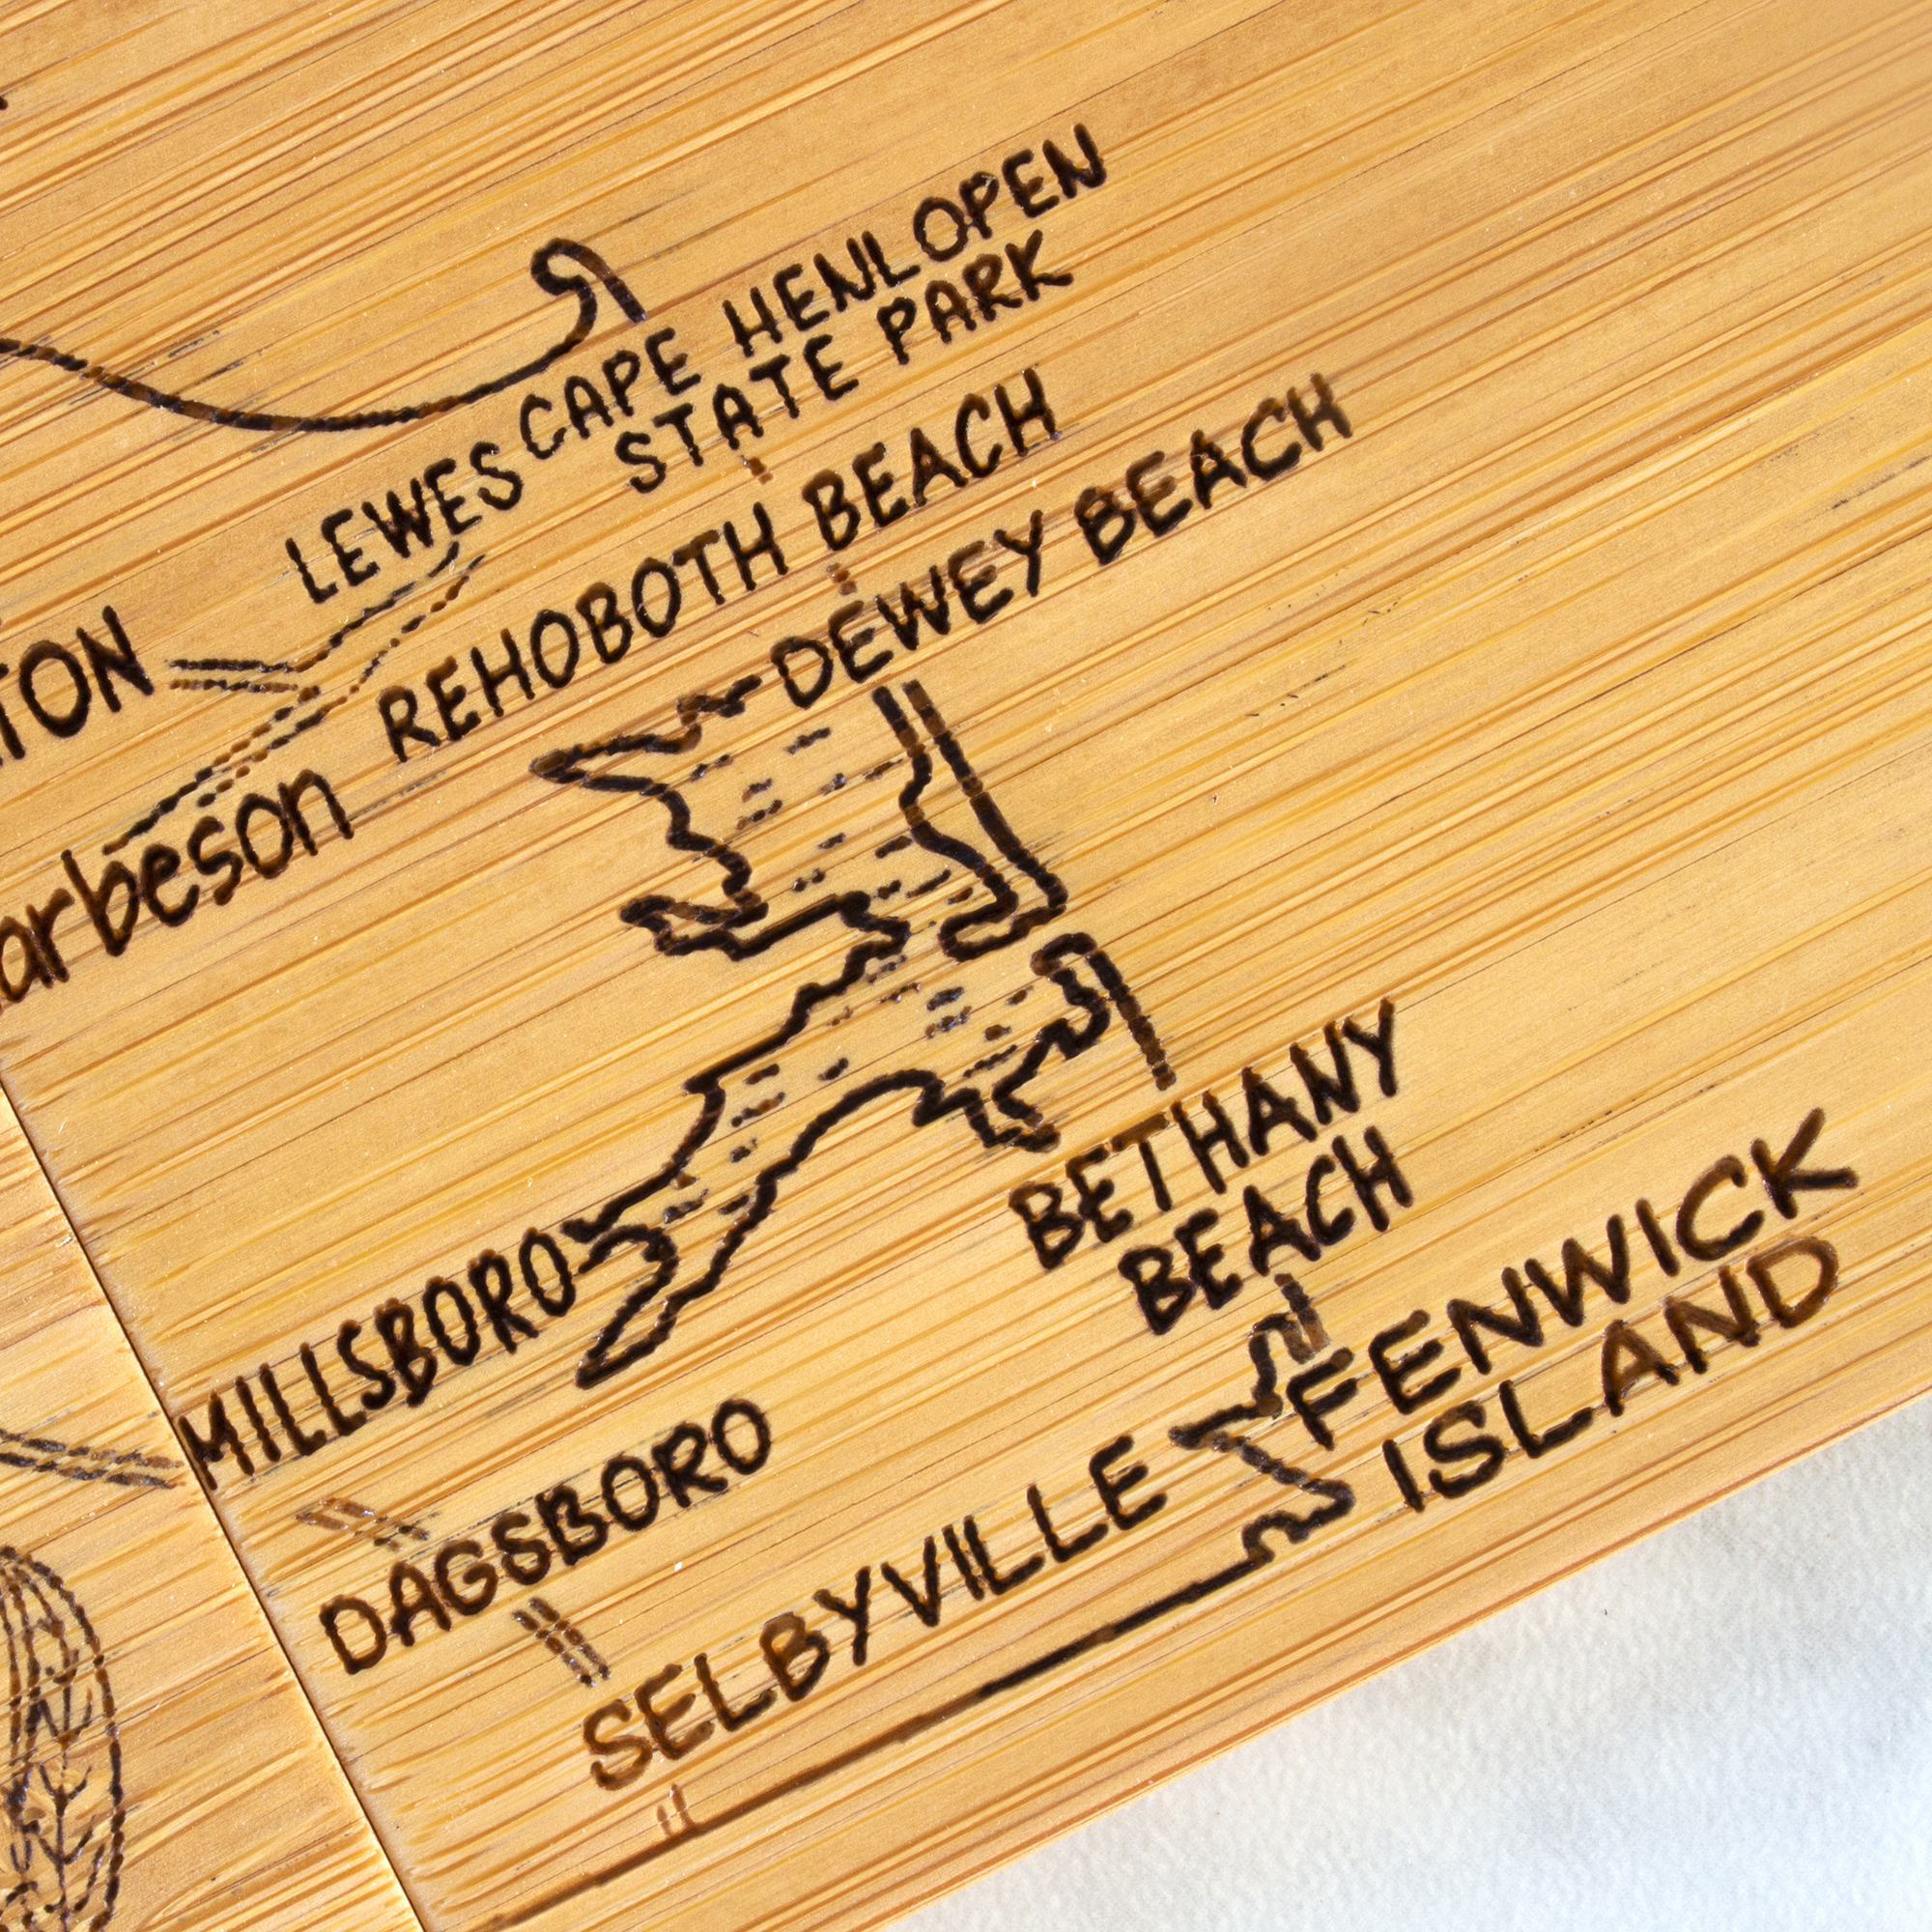 CAPE HENLOPEN
STATE PARK
LEWES
REHOBOTH BEACH
DEWEY BEACH
TON
arbeson
BETHANY
BEACH
MILLSBORO
FENWICK
ISLAND
DAGSBORO
SELBYVILLE